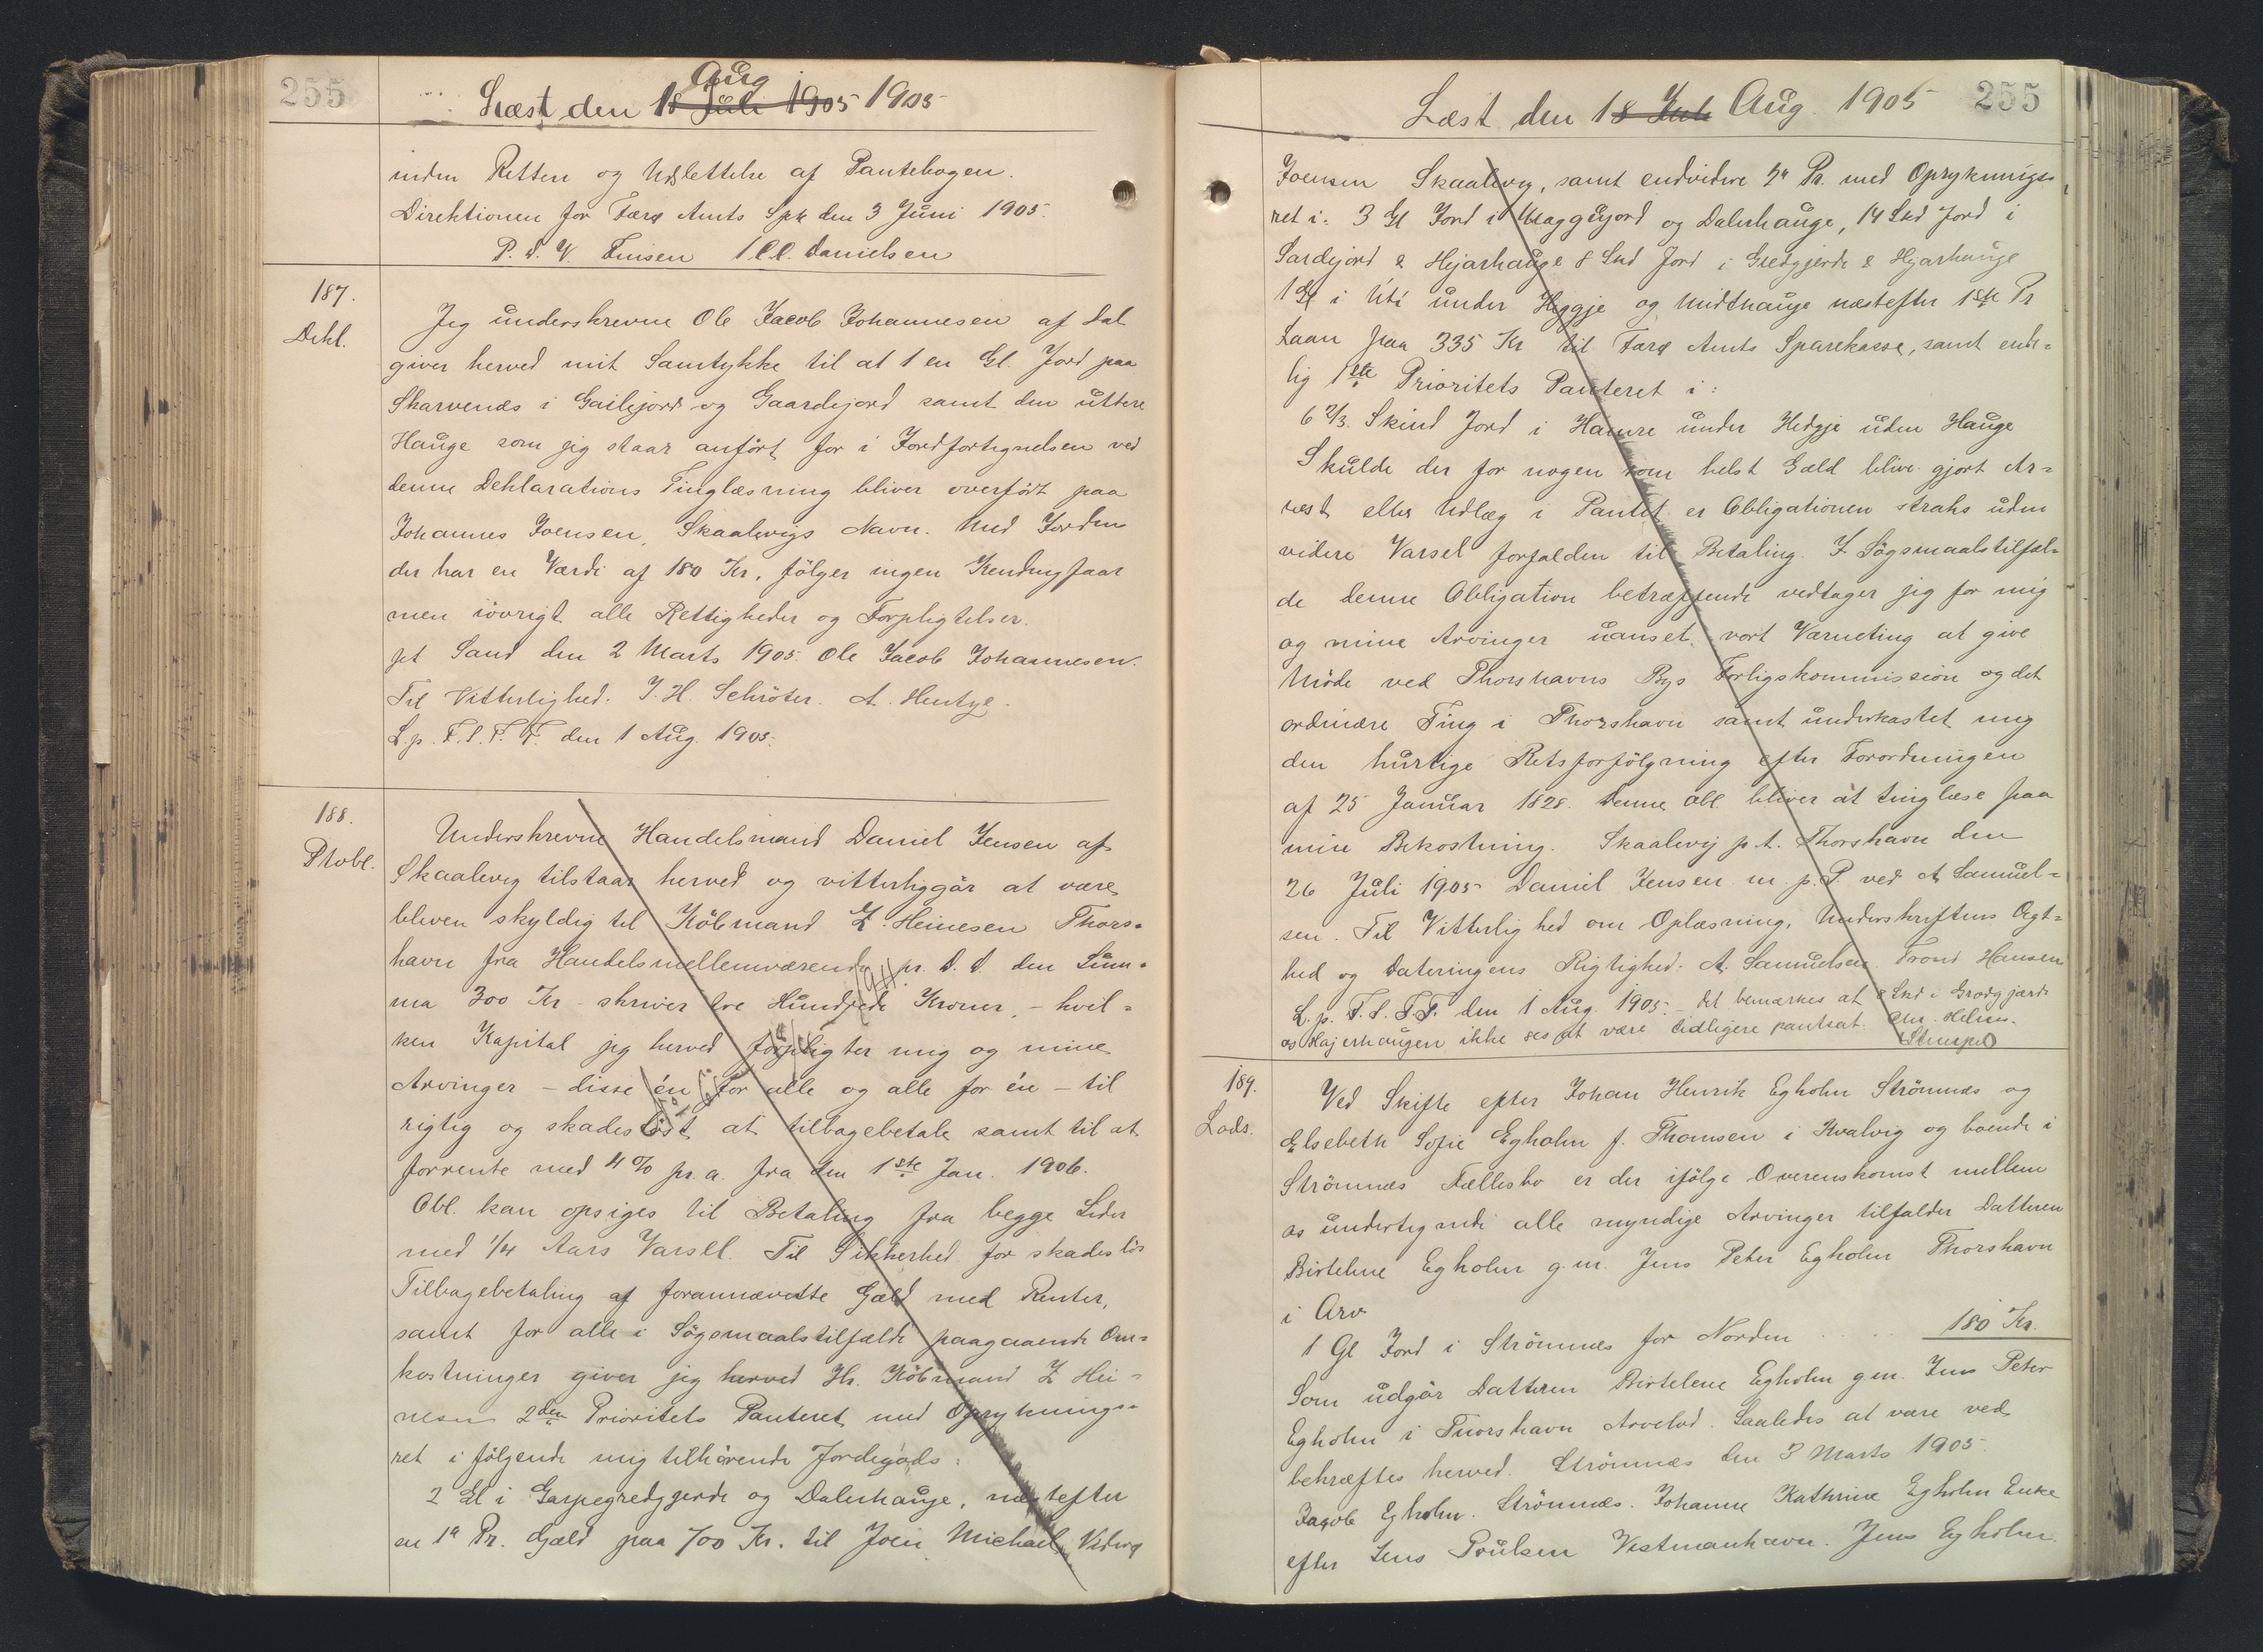 255
Aug
Læst den 18 Juli 1905 1905
inden Retten og Udslettelse af Pantebogen.
Direktionen for Færø Amts Spk den 3 Juni 1905.
P. S. V. Finsen 1.C.C. Danielsen
187.
Dekl.
Jeg underskrevne Ole Jacob Johannesen af Dal
giver herved mit Samtykke til at 1 en Gl. Jord paa
Skarvenæs i Gailejord og Gaardejord samt den uttere
Hauge som jeg staar anført for i Jordfortegnelsen ved
denne Deklarations Tinglæsning bliver overført paa
Johannes Joensen, Skaalevigs Navn. Med Jorden
der har en Værdi af 180 Kr. følger ingen Kendingsfaar
men iøvrigt alle Rettigheder og Forpligtelser.
pt Sand den 2 Marts 1905. Ole Jacob Johannesen.
Til Vitterlighed. J. H. Schröter. A. Hentze.
L. p. F. S. T. T. den 1 Aug. 1905.
188.
Ptobl.
Underskrevne Handelsmand Daniel Jensen af
Skaalevig tilstaar herved og vitterliggør at være
bleven skyldig til Købmand Z. Heinesen Thors-
havn fra Handelsmellemværende pr. D. D. den Sum-
ma 300 Kr - skriver tre Hundrede Kroner, - hvil-
ken Kapital jeg herved forpligter mig og mine
Arvinger - disse én for alle og alle for én - til
rigtig og skadesløst at tilbagebetale samt til at
forrente med 4 % pr. a. fra den 1ste Jan. 1906.
Obl. kan opsiges til Betaling fra begge Sider
med 1/4 Aars Varsel. Til Sikkerhed for skadesløs
Tilbagebetaling af forannævnte Gæld med Renter,
samt for alle i Søgsmaalstilfælde paagaaende Om-
kostninger giver jeg herved Hr. Købmand Z Hei-
nesen 2den Prioritets Panteret med Opryknings-
ret i følgende mig tilhørende Jordegods:
2 Gl i Garpegredgjerde og Dalerhauge, næstefter
en 1a Pr. Gæld paa 700 Kr. til Joen Michael Videvig
255
Læst den 18 Juli Aug. 1905
Joensen Skaalevig, samt endvidere 2a Pr. med Opryknings-
ret i: 3 Gl Jord i og Dalerhauge, 14 Skd Jord i
Sardejord & Hejarhauge 8 Skd Jord i Gredgjerde & Hjarhauge
1 Gl i Uti under Heggje og Midthauge næstefter 1ste Pr
Laan paa 335 Kr til Færø Amts Sparekasse, samt ende-
lig 1ste Prioritets Panteret i:
6 2/3. Skind Jord i Hamre under Hedgje uden Hauge
Skulde der for nogen som helst Gæld blive gjort Ar-
rest eller Udlæg i Pantet er Obligationen straks uden
videre Varsel forfalden til Betaling. I Søgsmaalstilfæl-
de denne Obligation betræffende vedtager jeg for mig
og mine Arvinger uanset vort Værneting at give
Møde ved Thorshavns Bys Forligskommission og det
ordinære Ting i Thorshavn samt underkastet mig
den hurtige Retsforfølgning efter Forordningen
af 25 Januar 1828. Denne Obl bliver at tinglæse paa
min Bekostning. Skaalevig p.t. Thorshavn den
26 Juli 1905 Daniel Jensen m. p. P. ved A Samuel-
sen. Til Vitterlighed om Oplæsning, Underskriftens Ægt-
hed og Dateringens Rigtighed. A. Samuelsen. Trond Hansen
L. p. F. S. T. T. den 1 Aug. 1905. - Det bemærkes at 8 Skd i Grødgjærde
os Hajerhaugen ikke ses at være tidligere pantsat.
Stempel
189.
Lods.
Ved Skifte efter Johan Henrik Egholm Strömnæs og
Elsebeth Sofie Egholm f. Thomsen i Kvalvig og boende i
Strömnæs Fællesbo er der ifølge Overenskomst mellem
os undertegnede alle myndige Arvinger tilfalder Datteren
Birtelene Egholm g.m. Jens Peter Egholm Thorshavn
i Arv
1 Gl Jord i Strömnæs for Norden . . . 180 Kr.
Som udgør Datteren Birtelene Egholm g.m. Jens Peter
Egholm i Thorshavn Arvelod. Saaledes at være ved
bekræftes herved. Strömnæs den 3 Marts 1905.
Jacob Egholm. Strömnæs. Johanne Kathrine Egholm Enke
efter Jens Poulsen Vestmanhavn. Jens Egholm.